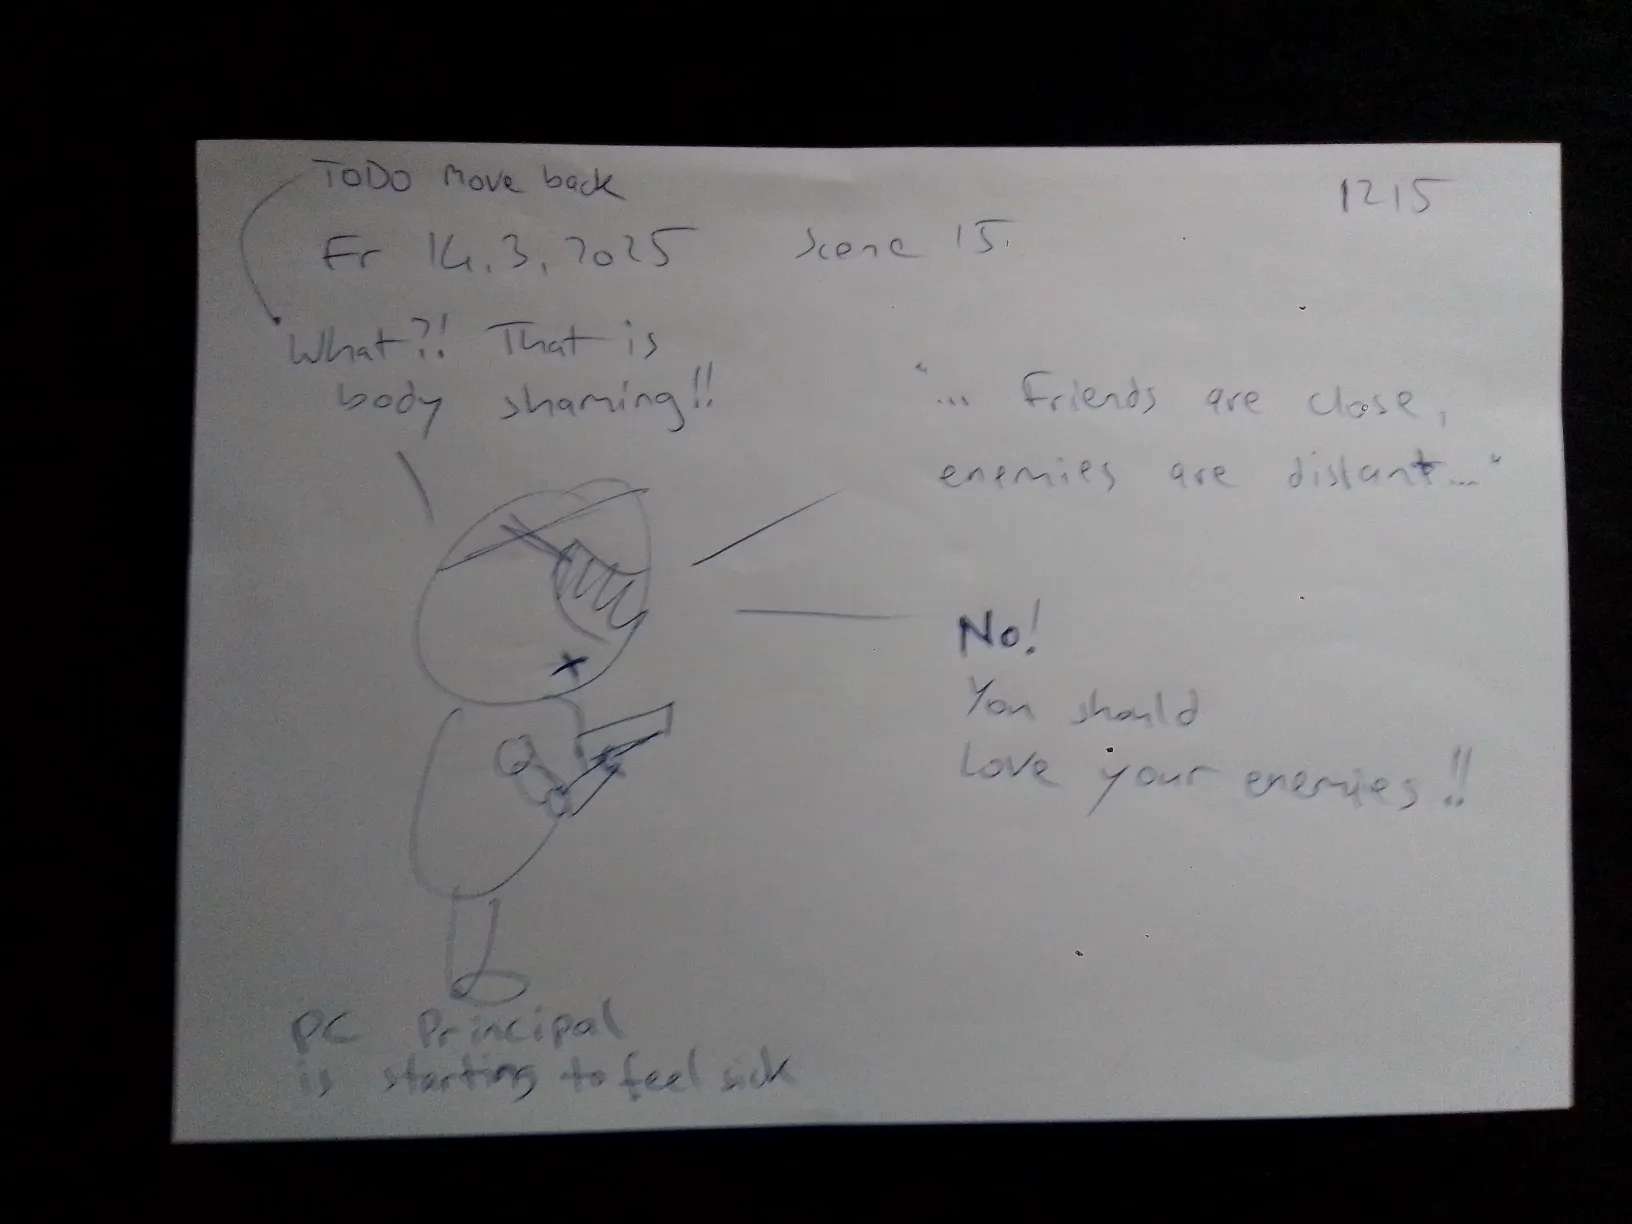 TODO Move back
1215
Fr 14.3.2025 Scene 15.
What?! That is
body shaming!!
"... Friends are close,
enemies are distant..."
No!
You should
Love your enemies!!
PC Principal
is starting to feel sick